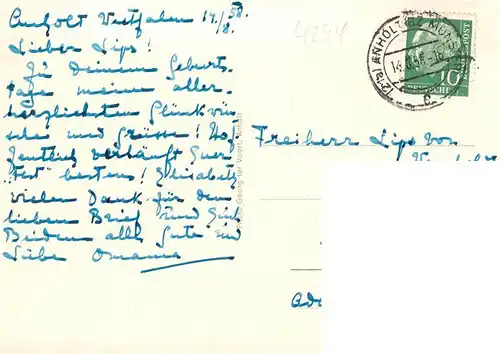 Anholt Westfalen 14/8. 58.
Lieber Lips!
Zu Deinem Geburts-
tage meine aller-
herzlichsten Glückwün-
sche und Grüsse! Hof-
fentlich verläuft Euer
"Fest" bestens! Elisabeth
vielen Dank für den
lieben Brief und Euch
Beiden alles Gute und
Liebe Omama
4294
(21a) ANHOLT
14.8.58
10
DEUTSCHE
POST
Georg ter Voert, Anholt
Freiherr Lips von